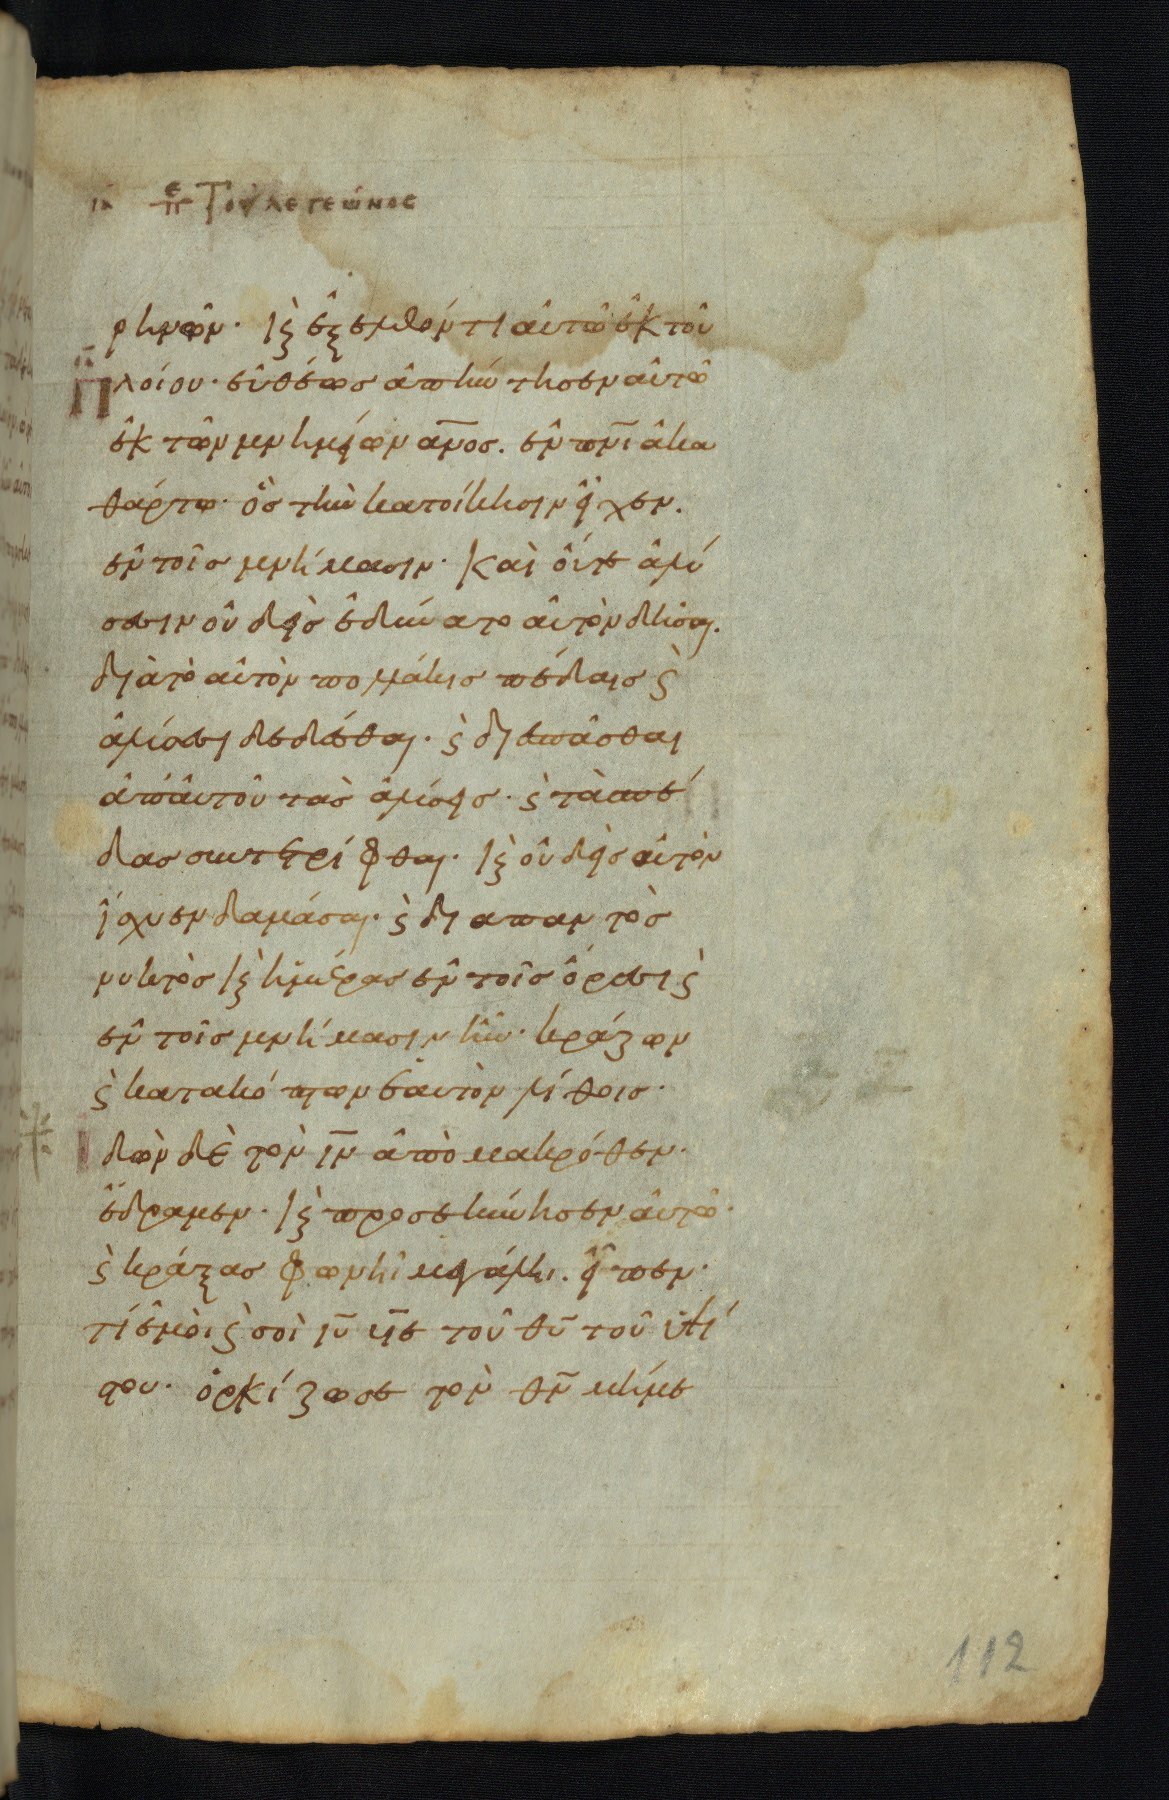 ια πε Του λεγεῶνος
ρηνῶν. κ(αὶ) ἐξελθόντι αὐτῶ ἐκ τοῦ
πλοίου. εὐθέως ἀπήντησεν αὐτῶ
ἐκ τῶν μνημείων ἄνος. ἐν πνι ἀκα
θάρτω. ὃς τὴν κατοίκησιν εἶχεν.
ἐν τοῖς μνήμασιν. Καὶ οὔτε ἁλύ
σεσιν οὐδεὶς ἐδύνατο αὐτὸν δῆσαι.
διὰ τὸ αὐτὸν πολλάκις πέδαις ϛ
ἁλύσεσι δεδέσθαι. ϛ διεσπᾶσθαι
ἀπ' αὐτοῦ τὰς ἁλύσεις. ϛ τὰς πέ
δας συντετρίφθαι. κ(αὶ) οὐδεὶς αὐτὸν
ἴσχυεν δαμάσαι. ϛ διαπαντὸς
νυκτὸς κ(αὶ) ἡμέρας ἐν τοῖς ὄρεσι ϛ
ἐν τοῖς μνήμασιν ἦν. κράζων
ϛ κατακόπτων ἑαυτὸν λίθοις.
Ἰδὼν δὲ τὸν ιν ἀπὸ μακρόθεν.
ἔδραμεν. κ(αὶ) προσεκύνησεν αὐτῶ.
ϛ κράξας φωνῆ μεγάλη. εἶπεν.
τί ἐμοὶ ϛ σοὶ ιυ υιε τοῦ θυ τοῦ ὑψί
στου. ὁρκίζω σε τὸν θν μή με
112